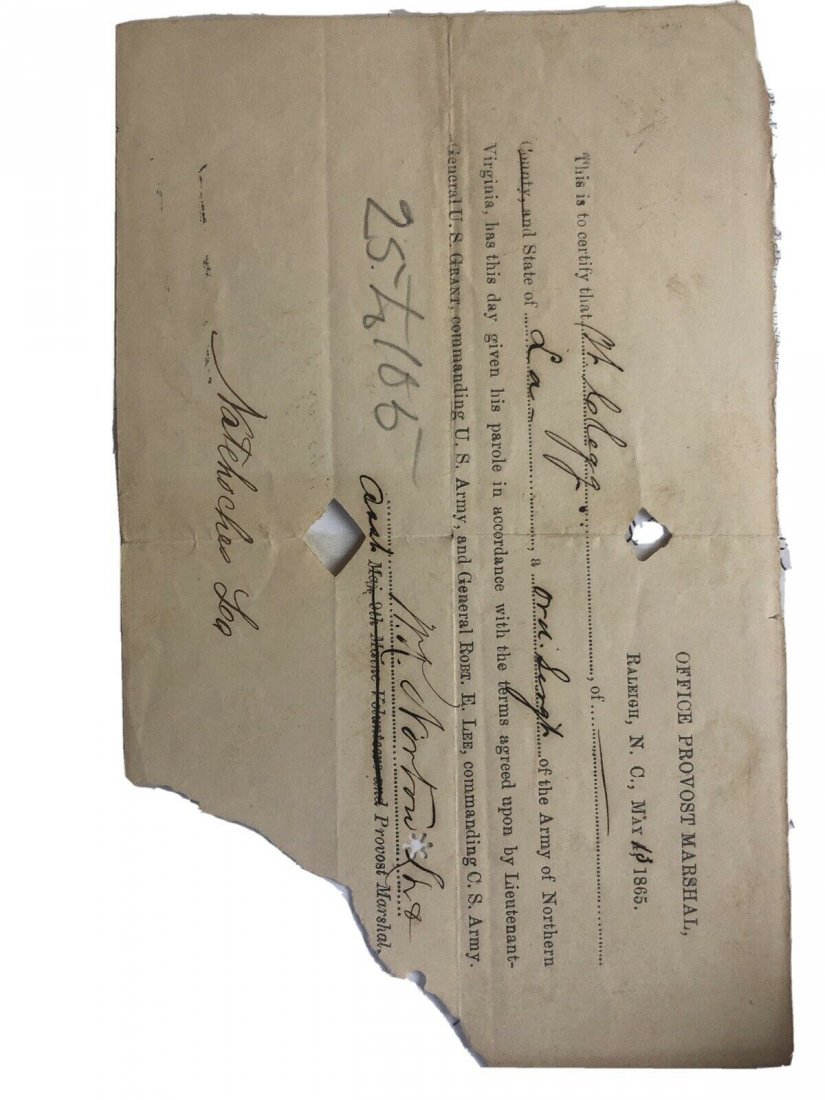 OFFICE PROVOST MARSHAL,
RALEIGH, N. C., MAY 13 1865.
This is to certify that Clegg, of
County, and State of La, a Ord. Sergt of the Army of Northern
Virginia, has this day given his parole in accordance with the terms agreed upon by Lieutenant-
General U. S. GRANT, commanding U. S. Army, and General ROBT. E. LEE, commanding C. S. Army.
Norton
Asst Maj. 9th Maine Volunteers and Provost Marshal,
Natchoches